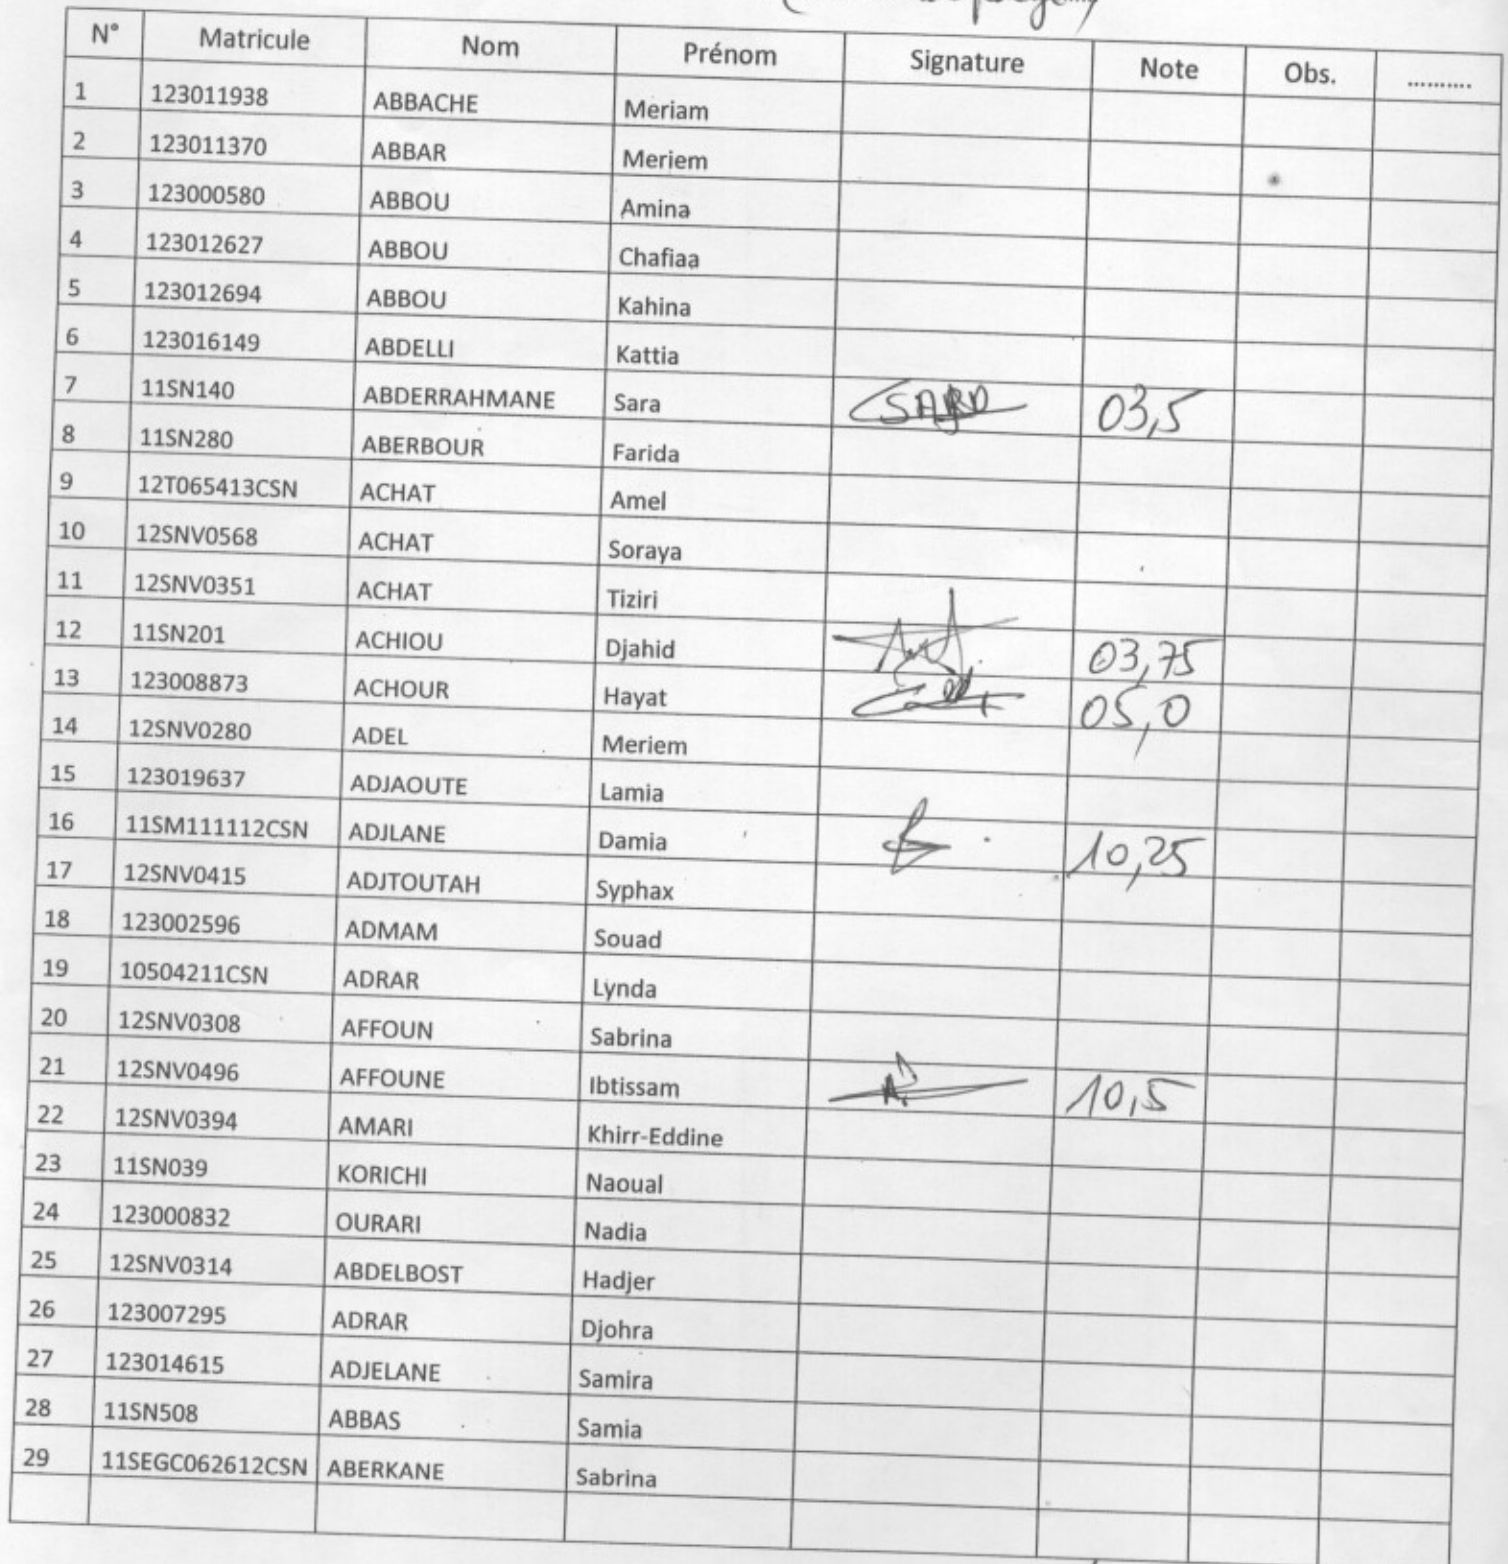 N° Matricule Nom Prénom Signature Note Obs. ..........
1 123011938 ABBACHE Meriam
2 123011370 ABBAR Meriem
3 123000580 ABBOU Amina
4 123012627 ABBOU Chafiaa
5 123012694 ABBOU Kahina
6 123016149 ABDELLI Kattia
7 11SN140 ABDERRAHMANE Sara 03,5
8 11SN280 ABERBOUR Farida
9 12T065413CSN ACHAT Amel
10 12SNV0568 ACHAT Soraya
11 12SNV0351 ACHAT Tiziri
12 11SN201 ACHIOU Djahid 03,75
13 123008873 ACHOUR Hayat 05,0
14 12SNV0280 ADEL Meriem
15 123019637 ADJAOUTE Lamia
16 11SM111112CSN ADJLANE Damia 10,25
17 12SNV0415 ADJTOUTAH Syphax
18 123002596 ADMAM Souad
19 10504211CSN ADRAR Lynda
20 12SNV0308 AFFOUN Sabrina
21 12SNV0496 AFFOUNE Ibtissam 10,5
22 12SNV0394 AMARI Khirr-Eddine
23 11SN039 KORICHI Naoual
24 123000832 OURARI Nadia
25 12SNV0314 ABDELBOST Hadjer
26 123007295 ADRAR Djohra
27 123014615 ADJELANE Samira
28 11SN508 ABBAS Samia
29 11SEGC062612CSN ABERKANE Sabrina